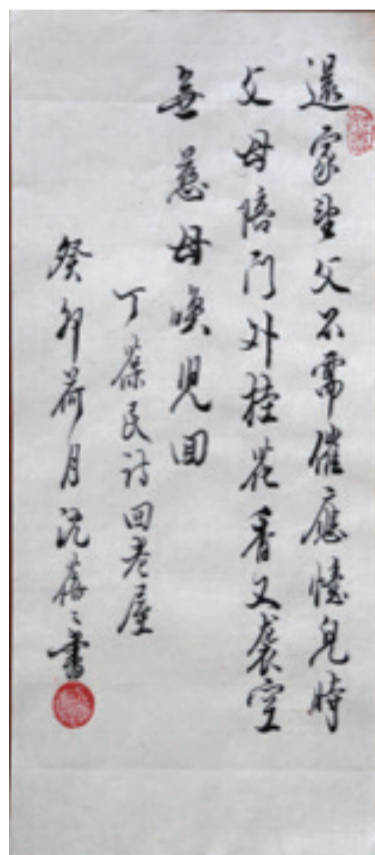 還家望父不需催應憶兒時
父母陪門外桂花香又襲空
無慈母喚兒回
丁葆民詩回老屋
癸卯荷月沈蓓々書